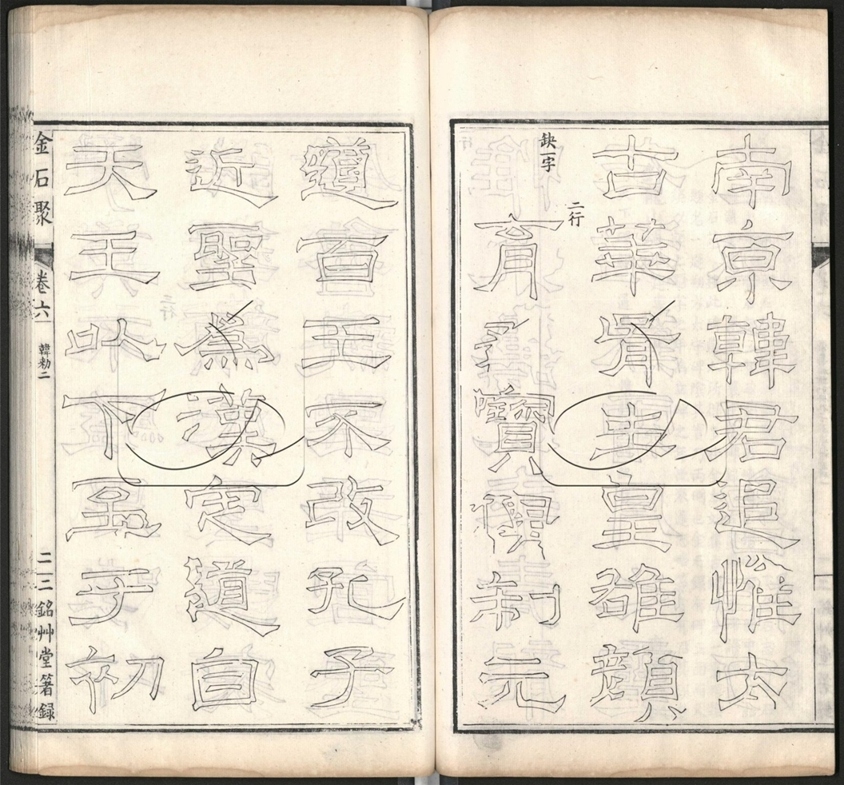 南京韓君追惟太
古華胥生皇雄顏
二行
缺一字
育孔寶俱制元
道百王不改孔子
近聖為漢定道自
天王以下至于初
金石聚
卷六
韓勑二
二
二銘艸堂箸錄